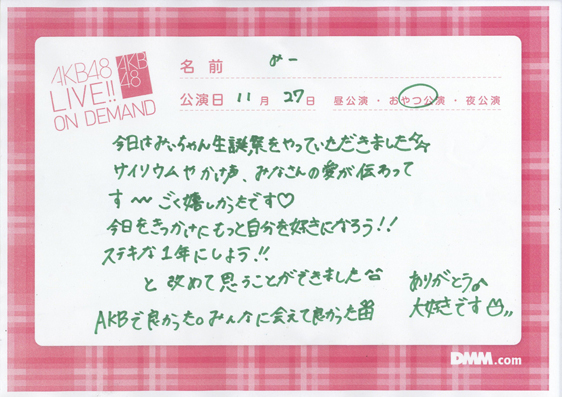 AKB48
LIVE!!
ON DEMAND
AKB
48
名前 みー
公演日 11月 27日 昼公演・おやつ公演・夜公演
今日はみぃちゃん生誕祭をやっていただきました
サイリウムやかけ声、みなさんの愛が伝わって
す〜〜ごく嬉しかったです♡
今日をきっかけにもっと自分を好きになろう!!
ステキな1年にしよう!!
と改めて思うことができました
ありがとう♪
大好きです
AKBで良かった。みんなに会えて良かった
DMM.com